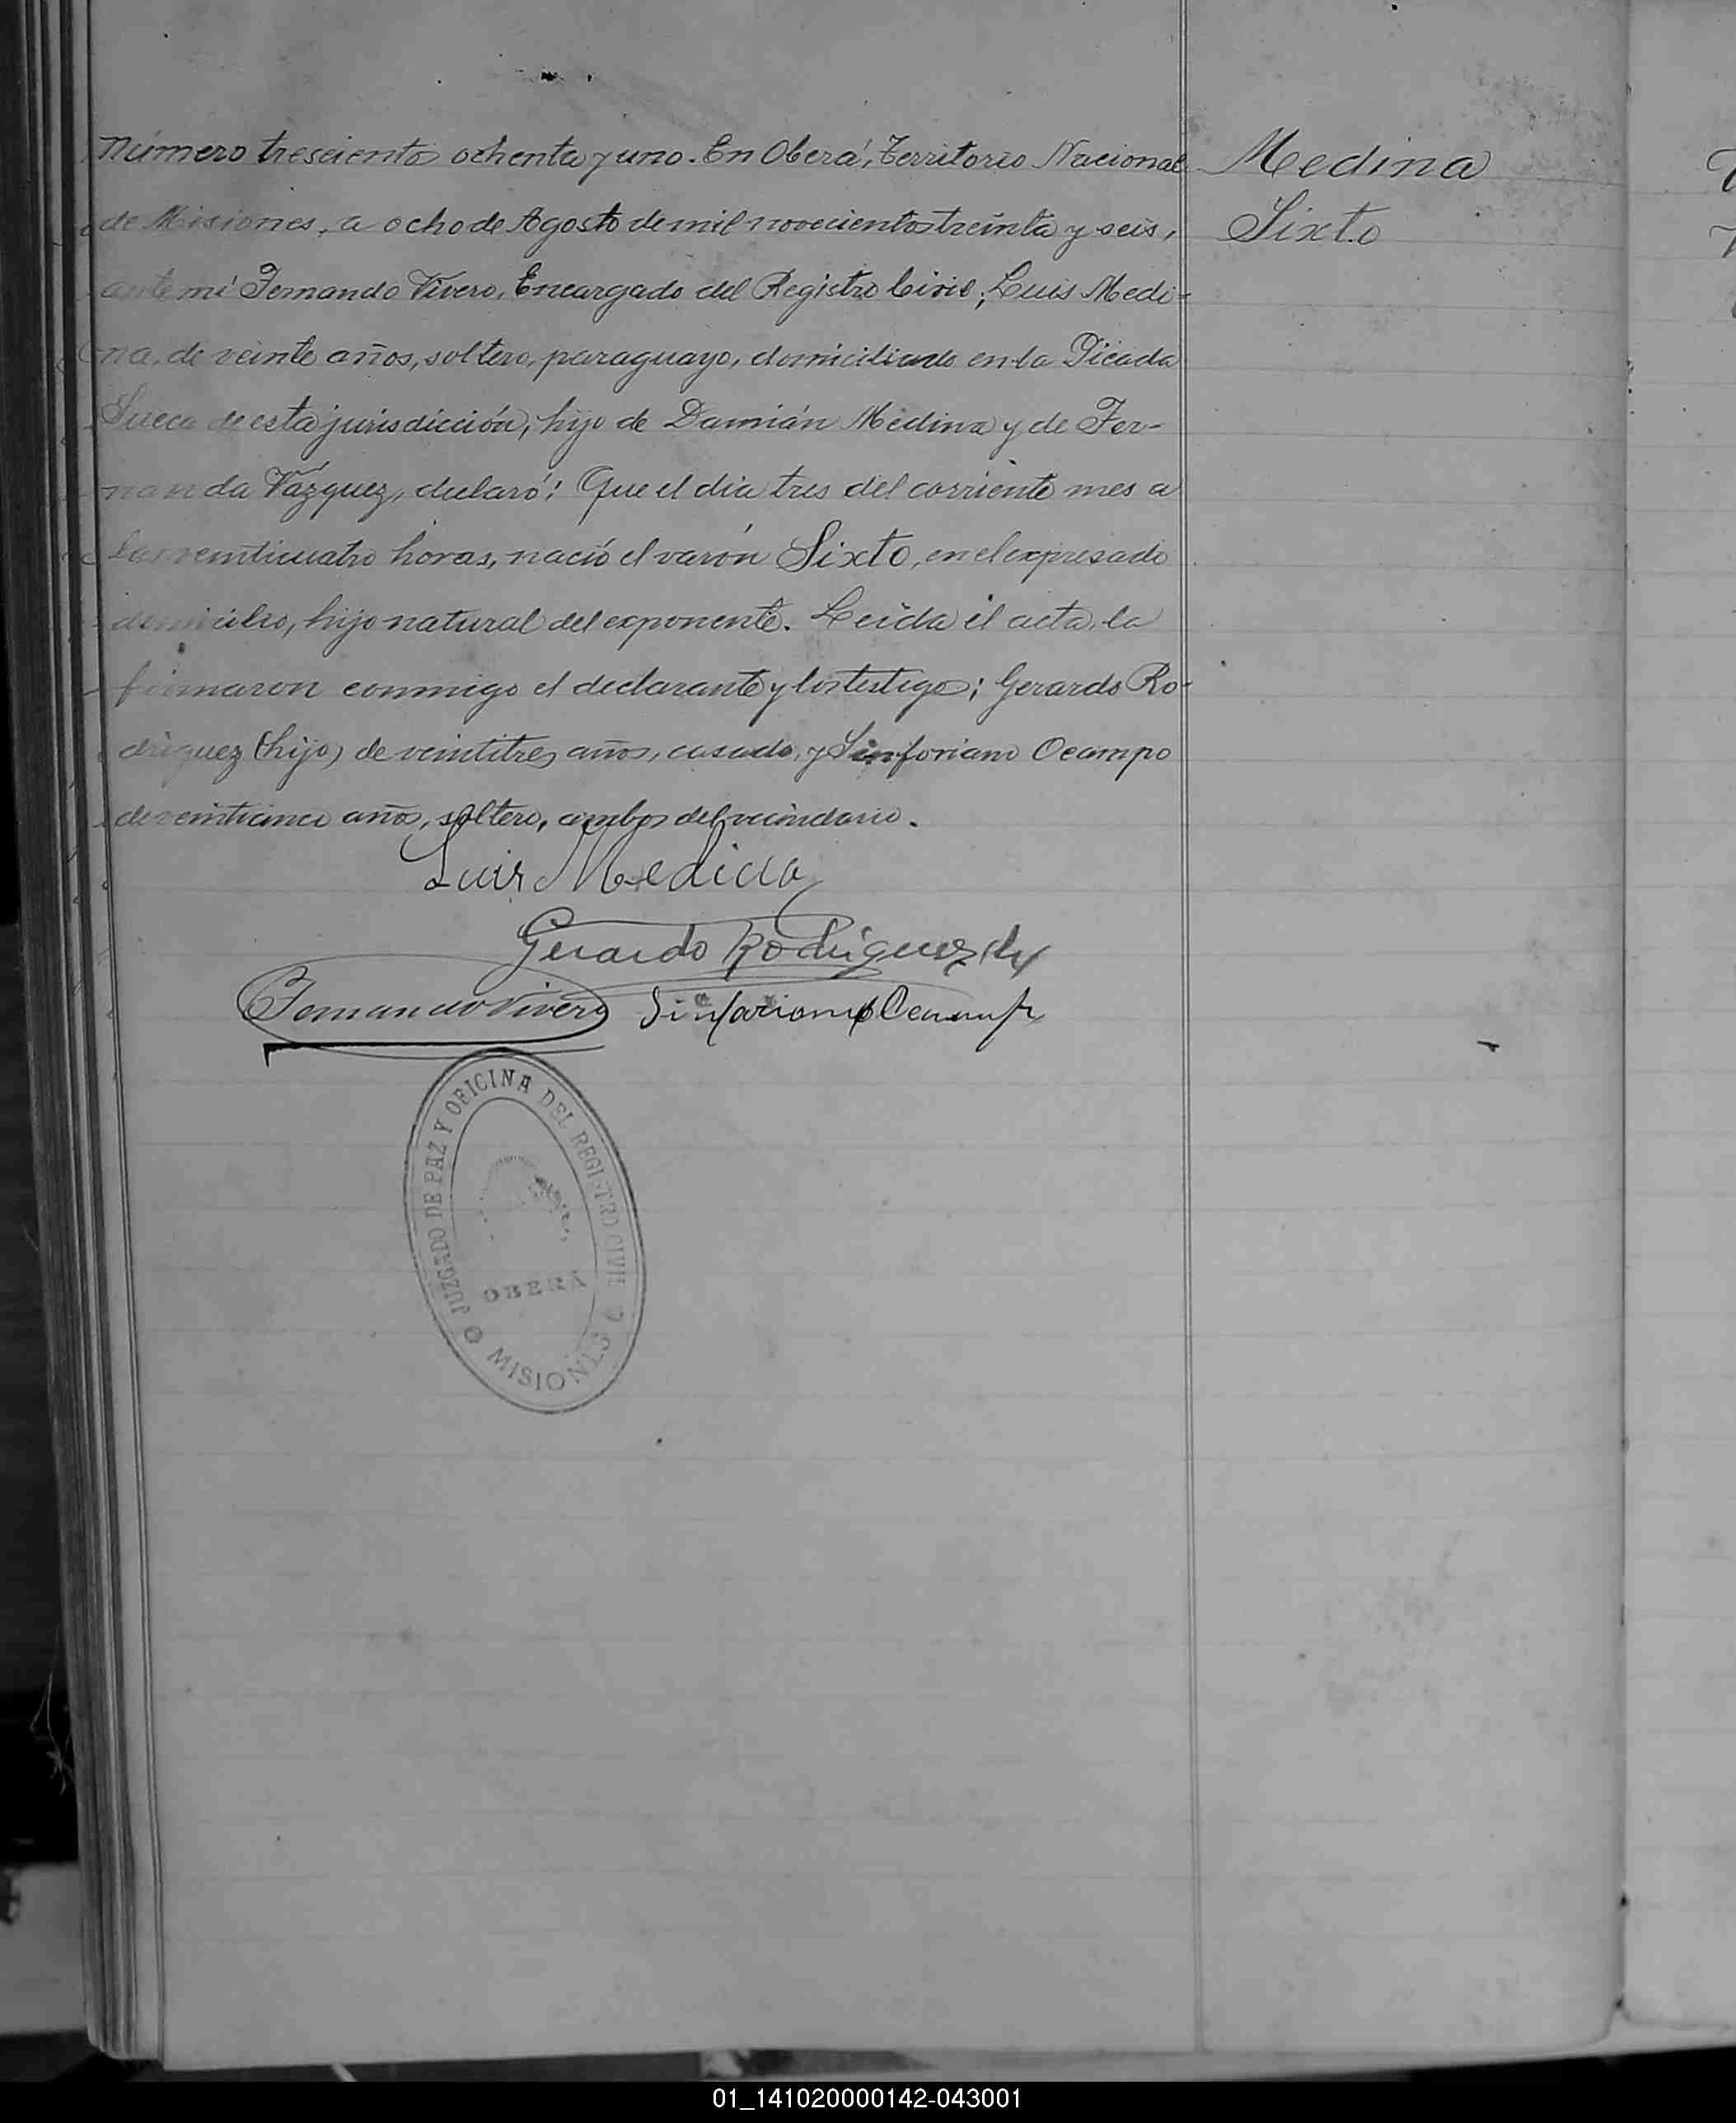 Número trescientos ochenta y uno. En Oberá, Territorio Nacional
de Misiones, a ocho de Agosto de mil novecientos treinta y seis,
ante mí Fernando Vivero, Encargado del Registro Civil; Luis Medi-
na, de veinte años, soltero, paraguayo, domiciliado en la Picada
Sueca de esta jurisdicción, hijo de Damián Medina y de Fer-
nanda Vázquez, declaró: Que el día tres del corriente mes a
las veinticuatro horas, nació el varón Sixto, en el expresado
domicilio, hijo natural del exponente. Leída el acta, la
firmaron conmigo el declarante y los testigos; Gerardo Ro-
driguez (hijo) de veintitres años, casado, y Sinforiano Ocampo
de veinticinco años, soltero, ambos del vecindario.
Medina
Sixto
Luis Medina
Gerardo Rodriguez (h)
Fernando Vivero Sinforiano Ocampo
JUZGADO DE PAZ Y OFICINA DEL REGISTRO CIVIL
OBERÁ
MISIONES
01_141020000142-043001